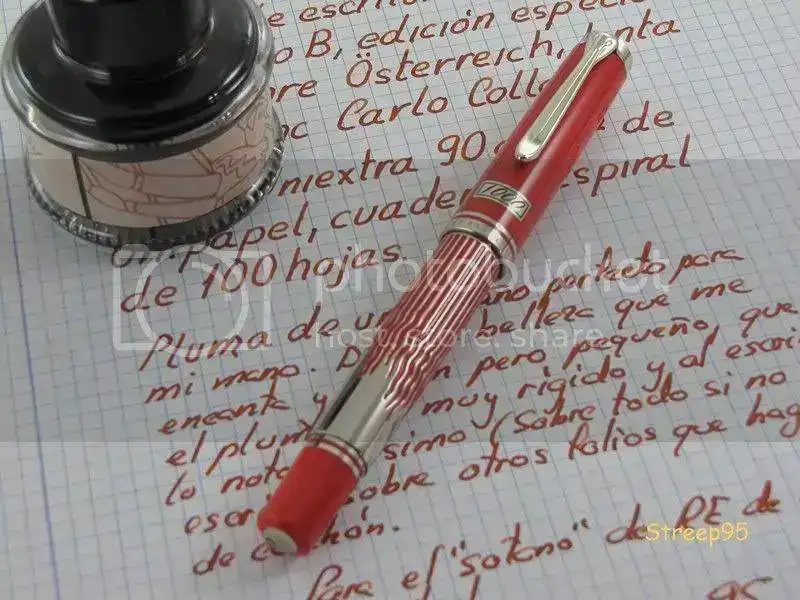 e escri
o B, edición espec
re Österreich, nta
c Carlo Coll
niextra 90 de
papel, cuade espiral
de 100 hojas.
Pluma de u ano perfecto para
mi mano. D belleza que me
encanta y pero pequeño, que
el plum muy rígido y al escri
lo nota simo (sobre todo si no
escri sobre otros folios que hag
de c ón.
Para el "sotano" de PE de
95
1000
photobucket
host. store. share
Streep95